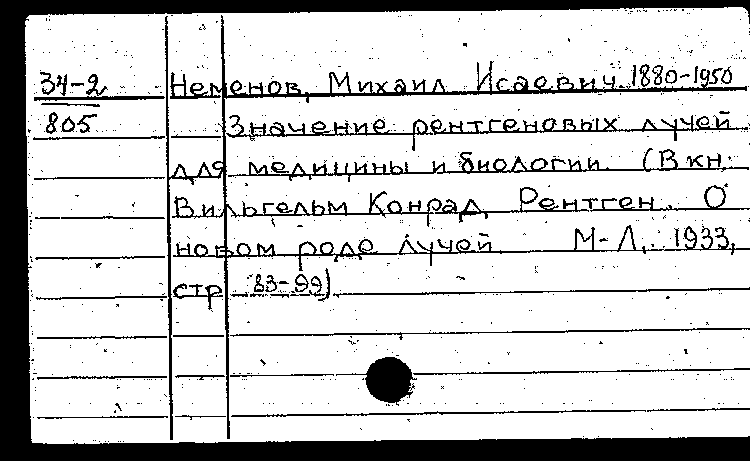 34-2 Неменов, Михаил Исаевич. 1880-1950
805 Значение рентгеновых лучей
для медицины и биологии. (В кн:
Вильгельм Конрад Рентген. О
новом роде лучей М-Л, 1933,
стр 83-99)